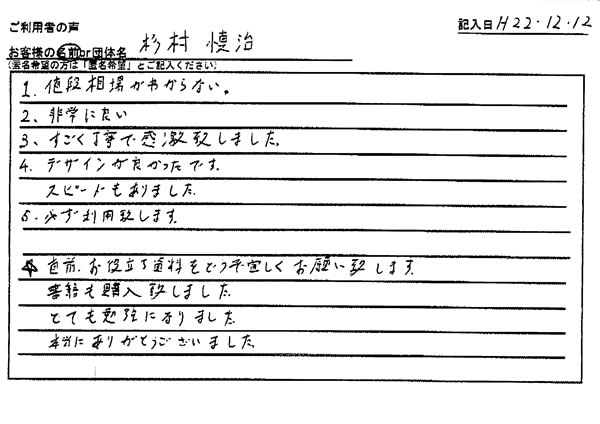 ご利用者の声
記入日 H22.12.12
お客様の名前or団体名 杉村 慎治
(匿名希望の方は「匿名希望」とご記入ください)
1. 値段相場がわからない。
2. 非常に良い
3. すごく丁寧で感激致しました。
4. デザインが良かったです。
スピードもありました。
5. 必ず利用致します。
☆ 直前.お役立ち資料をどうぞ宜しくお願い致します。
書籍も購入致しました。
とても勉強になりました。
本当にありがとうございました。